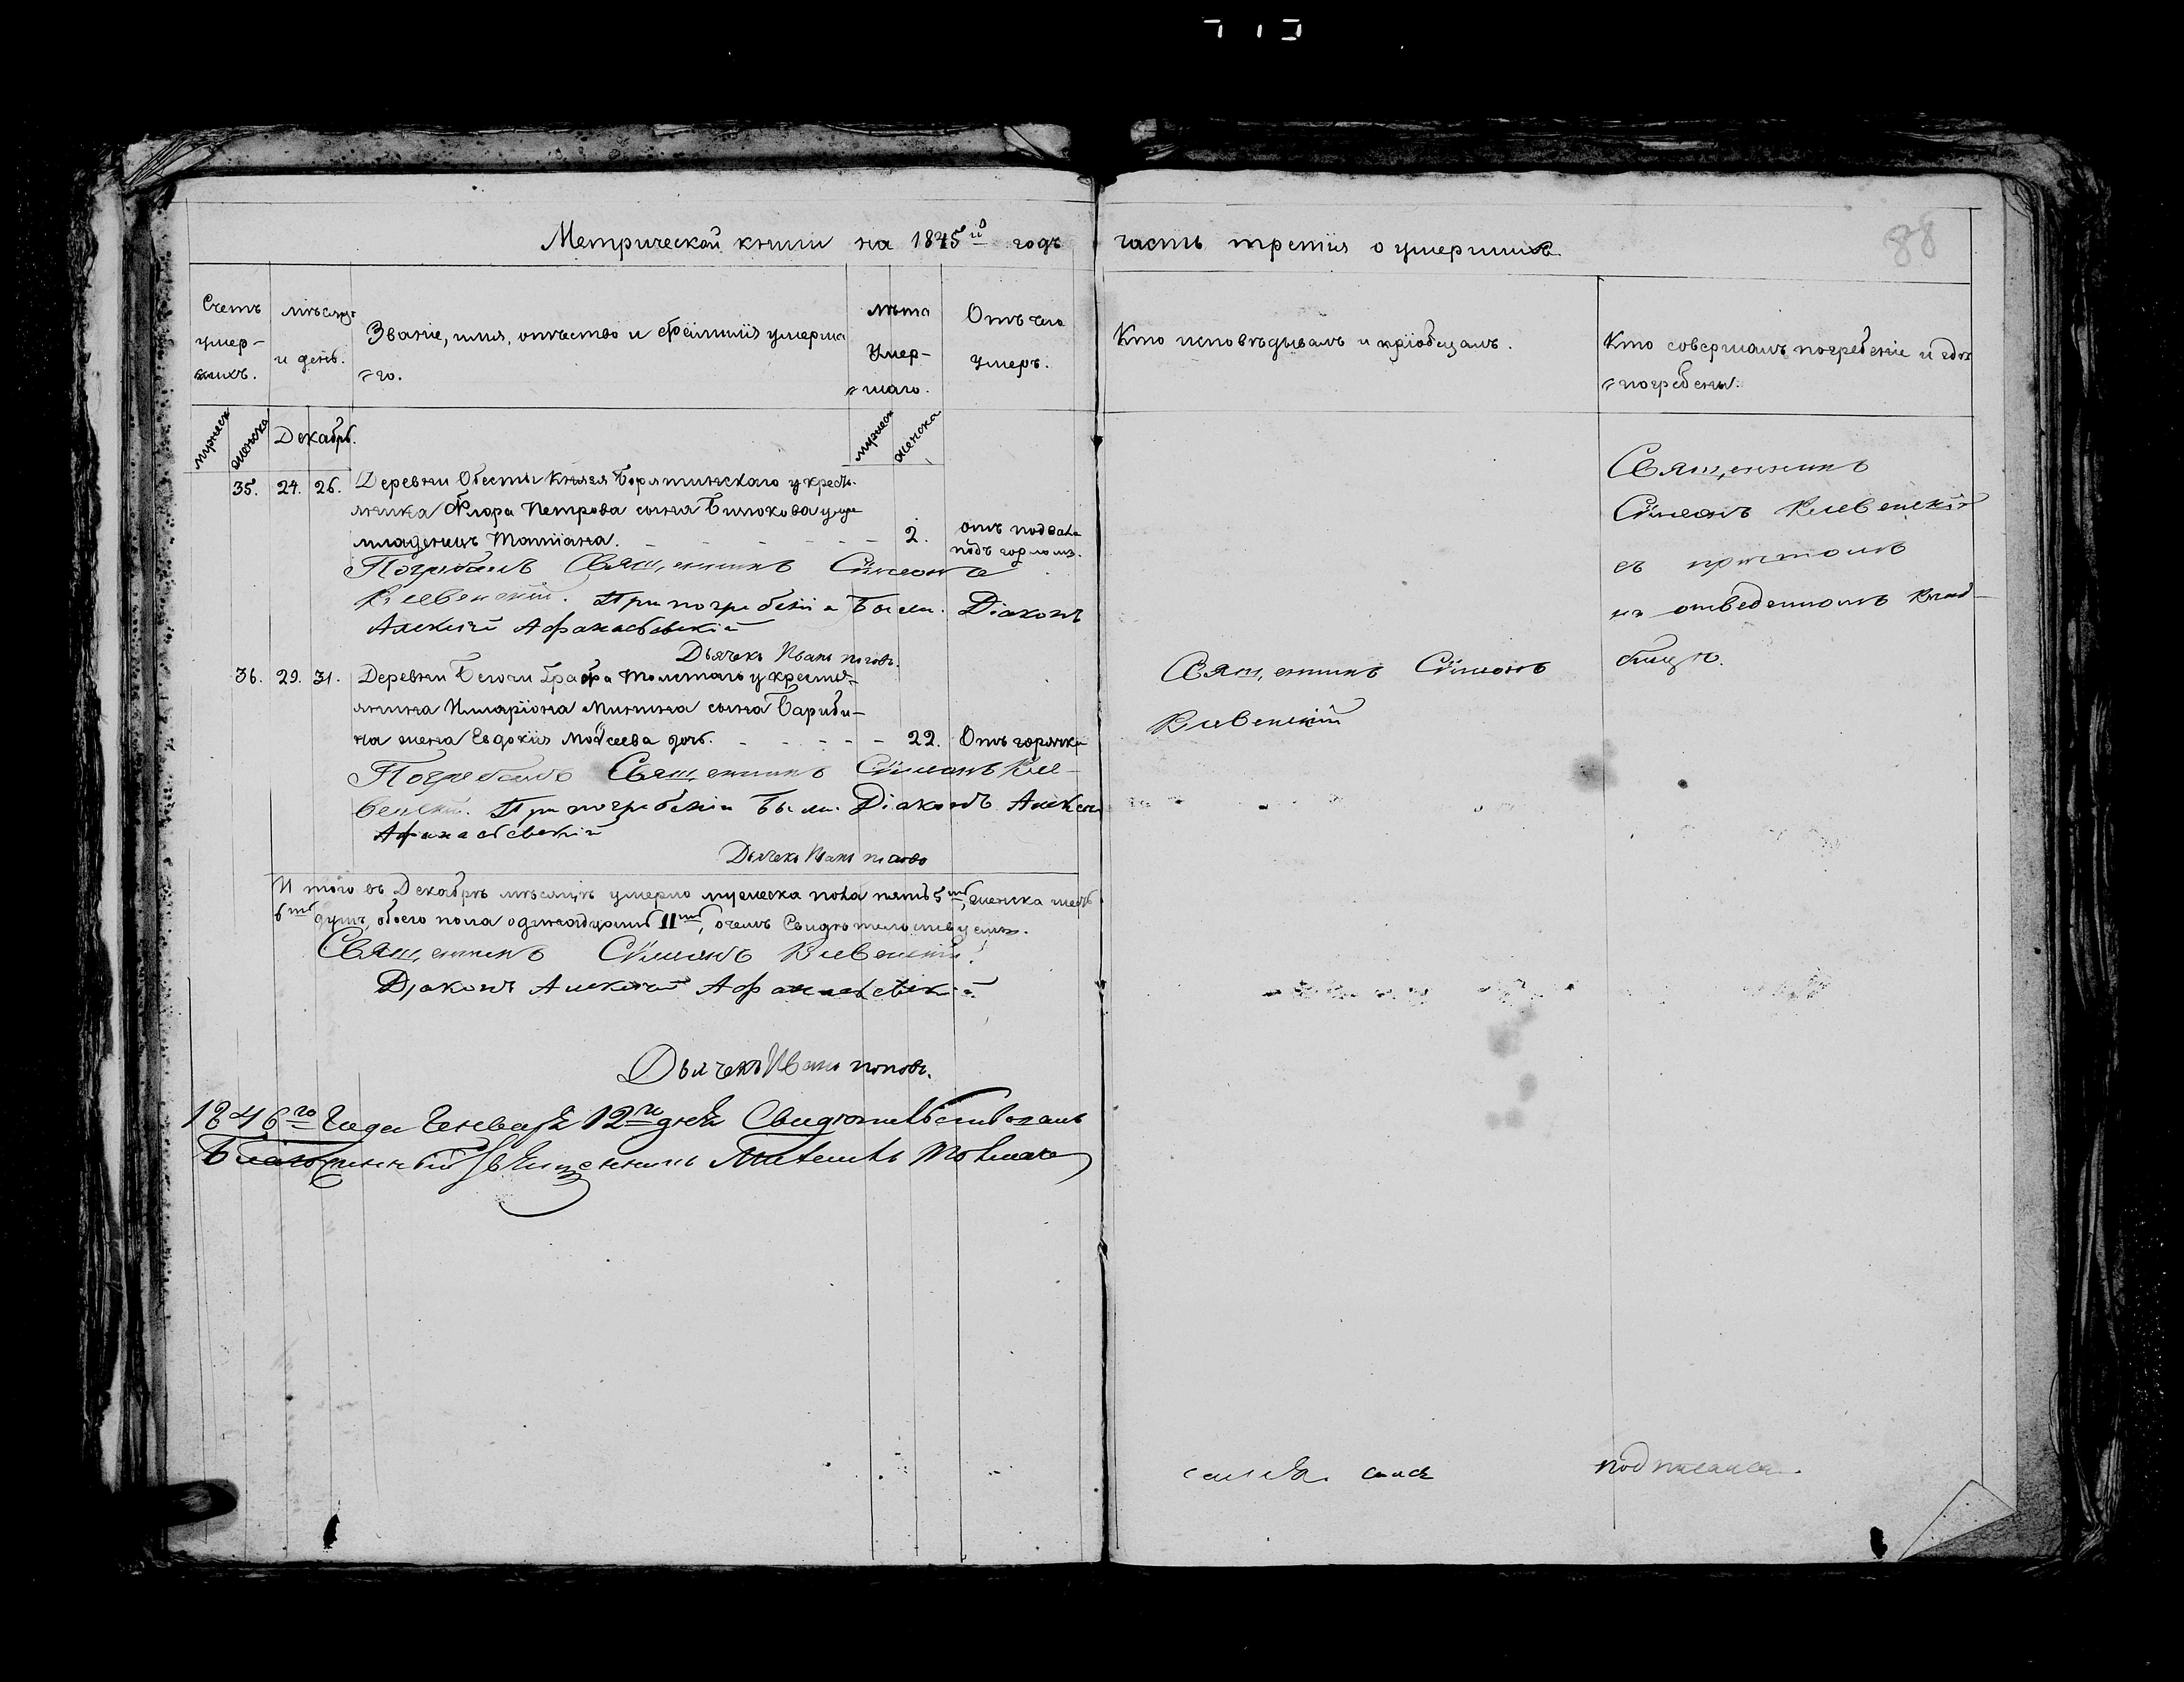 Метрической книги на 1845й годъ часть третія о умершихъ.
88
Счетъ умер-
шихъ.
мѣсяцъ
и день.
Званіе, имя, отчество и фамилія умерша
го.
Лѣта
Умер-
шаго.
Отъ чего
умеръ.
Кто исповѣдывалъ и пріобщалъ.
Кто совершалъ погребеніе и гдѣ
погребены.
мужеск
женска
Декабрь.
мужеск
женска
35. 24. 26. Деревни Обесты Князя Борятинскаго у кресть-
янина Флора Петрова сына Бирюкова
младенецъ Татіана. 2. отъ
подъ горломъ.
Погребалъ Священникъ Сѵмеонъ
Клевенскій. При погребеніи Были. Діаконъ
Алексѣй Афанасьевскій
Дьячекъ Иванъ Поповъ.
Священникъ
Сѵмеонъ Клевенскій
съ причтомъ
на отведенномъ Клад-
бищѣ.
36. 29. 31. Деревни Бегочи Графа Толстаго у кресть-
янина Илларіона Минина сына Бариби-
на жена Евдокія Моѵсеева дочь. 22. Отъ горячки
Погребалъ Священникъ Сѵмеонъ Кле-
венскій. При погребеніи Были. Діаконъ Алексѣй
Афанасьевскій
Дьячекъ Иванъ Поповъ
Священникъ Сѵмеонъ
Клевенскій
И того въ Декабрѣ мѣсяцѣ умерло мужеска пола пять 5ть, женска шесть
6ть душъ, обоего пола одинадцать 11ть, о чемъ Свидѣтельствуемъ.
Священникъ Сѵмеонъ Клевенскій
Діаконъ Алексѣй Афанасьевскій
Дьячекъ Иванъ Поповъ.
1846го Года Генваря 12го дня Свидѣтельствовалъ
Благочинный Священникъ